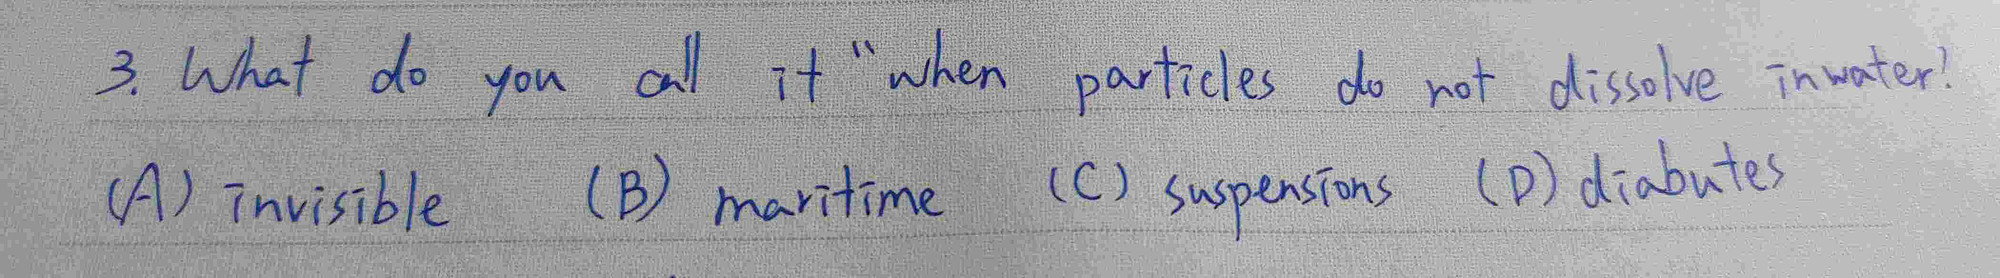 3. What do you call it "when particles do not dissolve in water?
(A) invisible (B) maritime (C) suspensions (D) diabutes